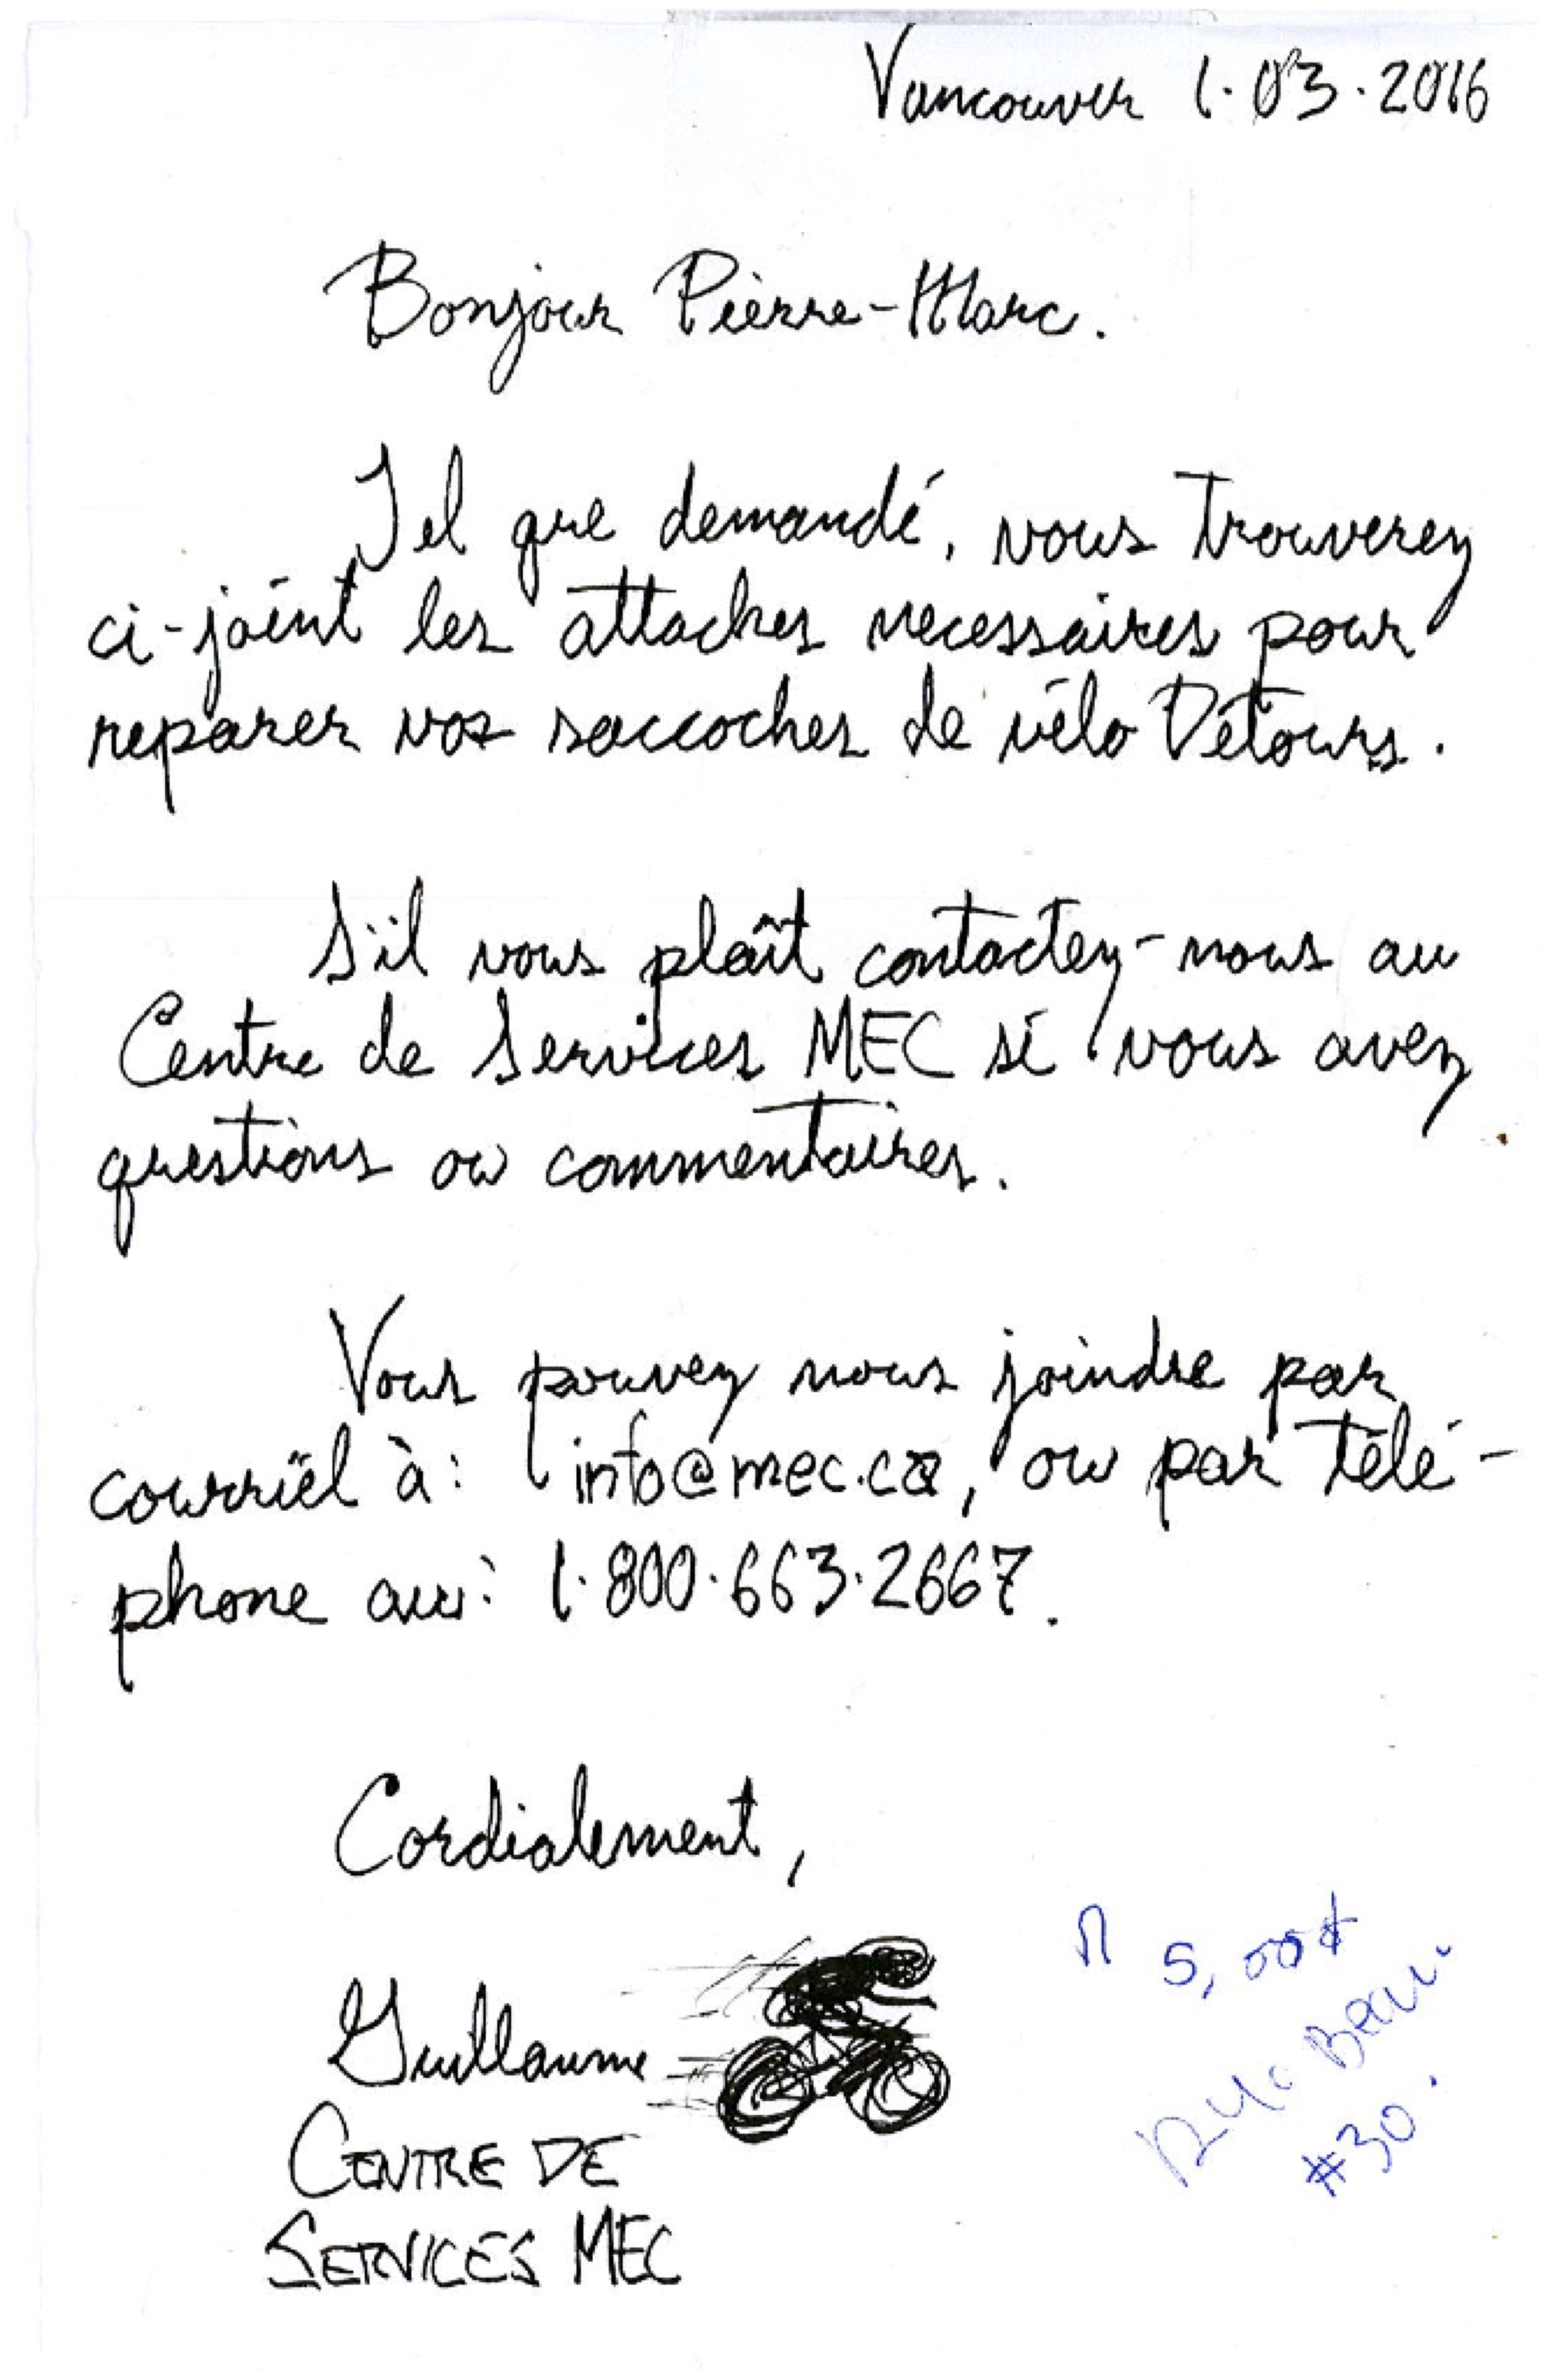 Vancouver 1.03.2016
Bonjour Pierre-Marc.
Tel que demandé, vous trouverez
ci-joint les attaches necessaires pour
reparer vos saccoches de vélo Détours.
S'il vous plaît contactez-nous au
Centre de Services MEC si vous avez
questions ou commentaires.
Vous pouvez nous joindre par
courriel à: info@mec.ca, ou par télé-
phone au: 1.800.663.2667.
Cordialement,
Guillaume
CENTRE DE
SERVICES MEC
5,00$
#30.